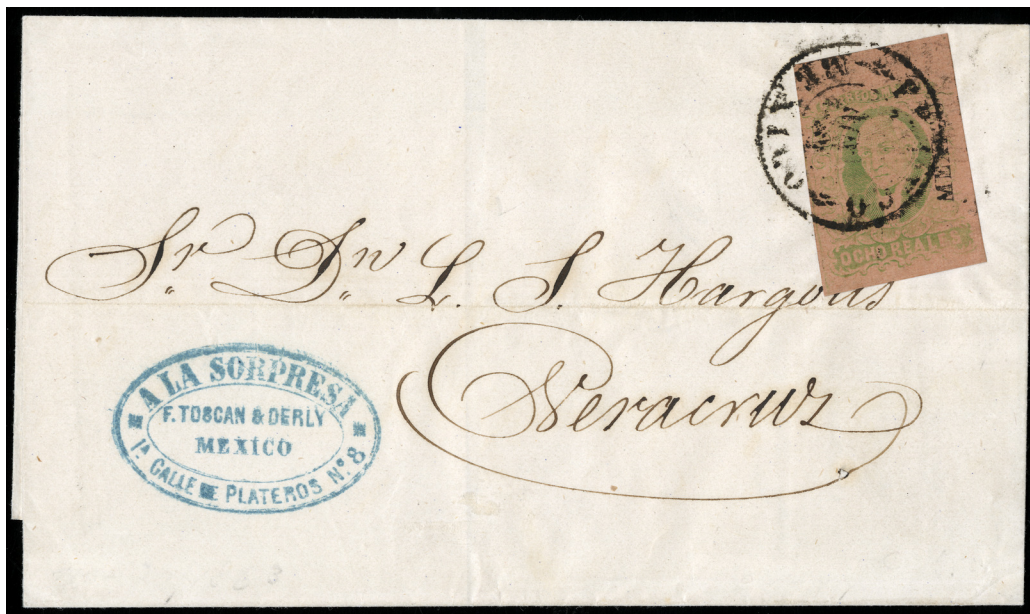 MEXICO
OCHO REALES
Sr. Dn. L. S. Hargous
Veracruz
A LA SORPRESA
F. TOSCAN & DERLY
MEXICO
1ª CALLE DE PLATEROS Nº 8